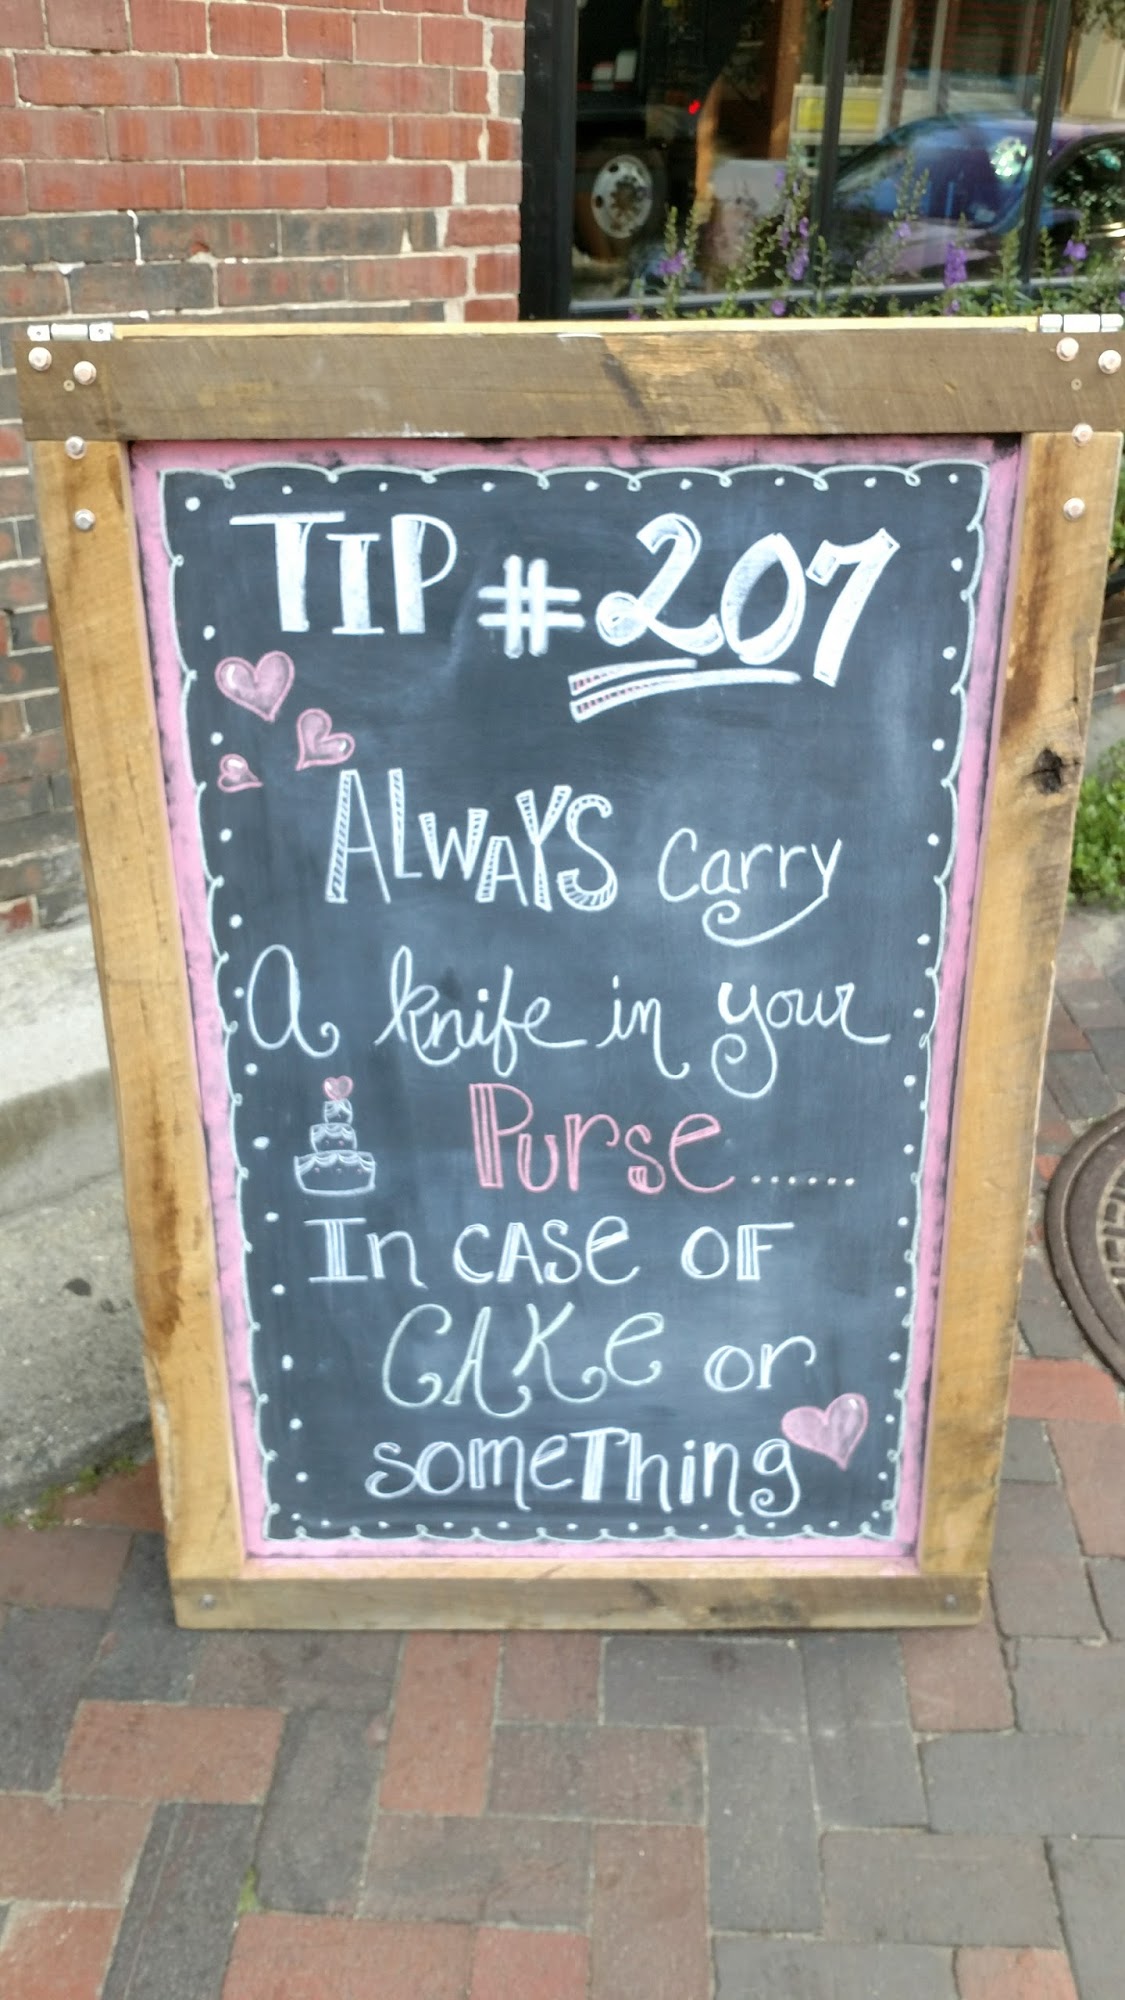 TIP #207
ALWAYS carry
A knife in your
Purse......
In CASe OF
CAKe or
someThing